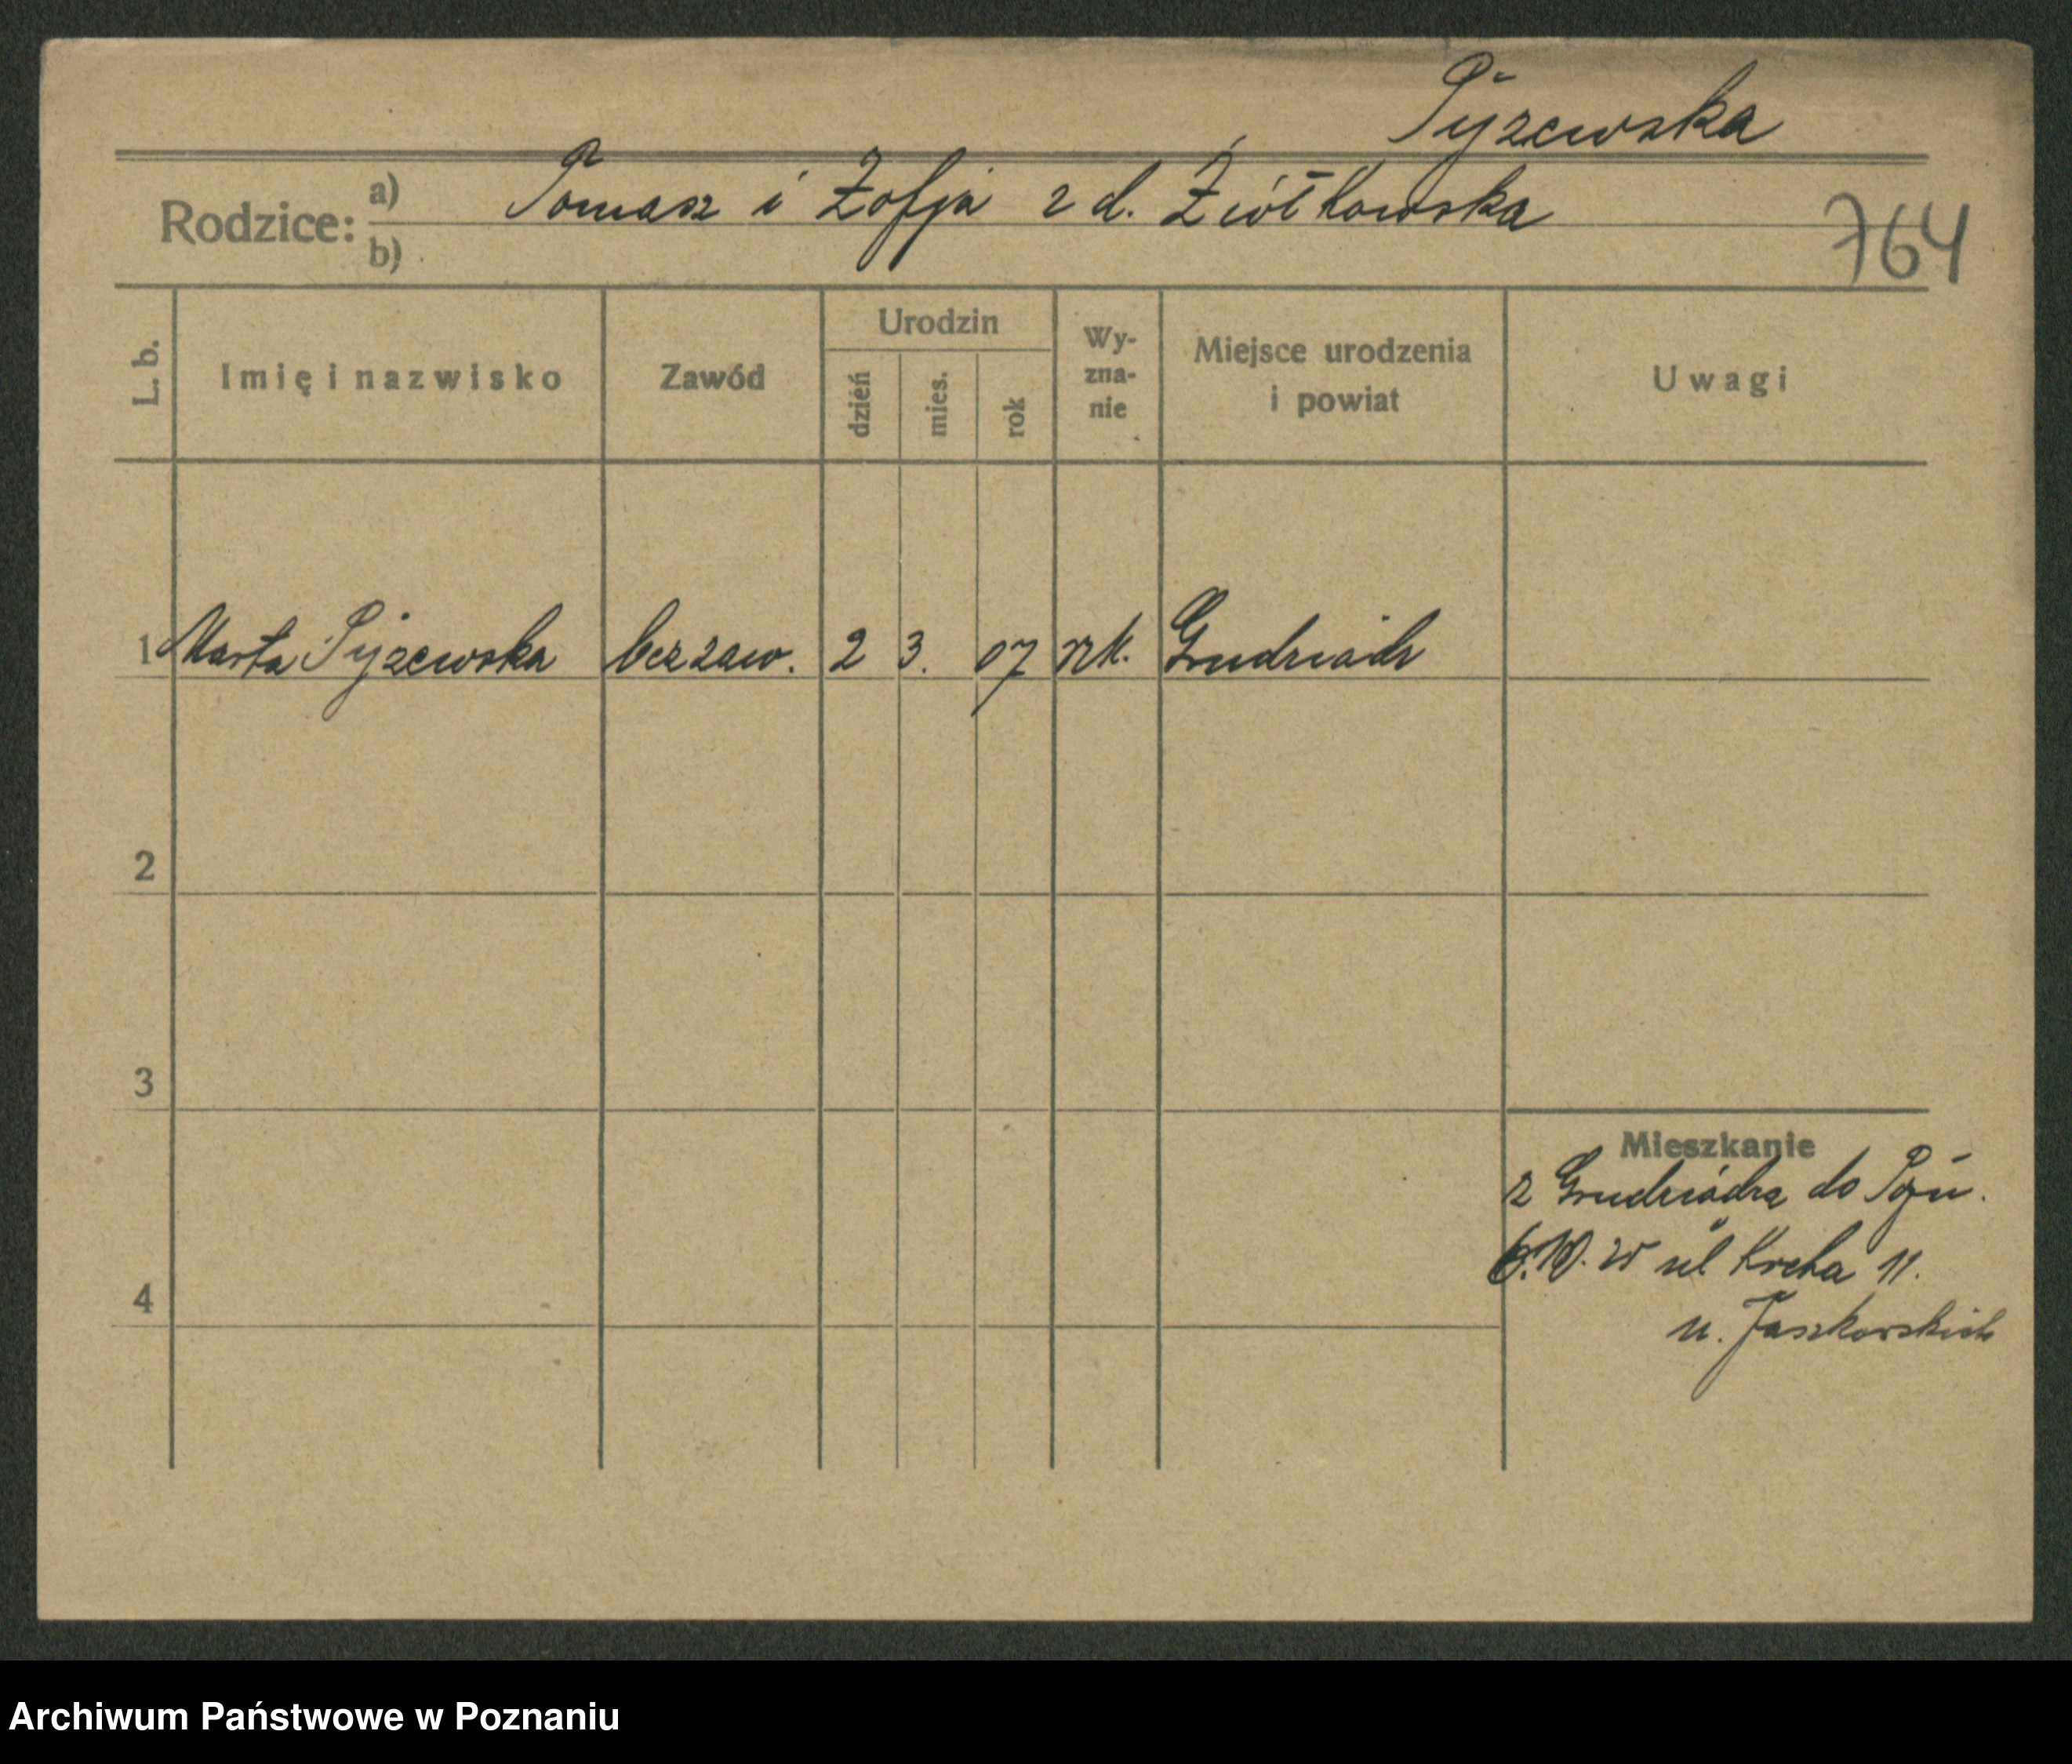 Pyżewska
Rodzice: a) Tomasz i Zofja z d. Ziółkowska
b)
764
L. b.
Imię i nazwisko
Zawód
Urodzin
dzień
mies.
rok
Wy-
zna-
nie
Miejsce urodzenia
i powiat
Uwagi
1 Marta Pyżewska bez zaw. 2 3. 07 rzk. Grudziądz
2
3
4
Mieszkanie
z Grudziądza do Pozn.
ul Kreta 11.
u. Jaszkowskich
Archiwum Państwowe w Poznaniu